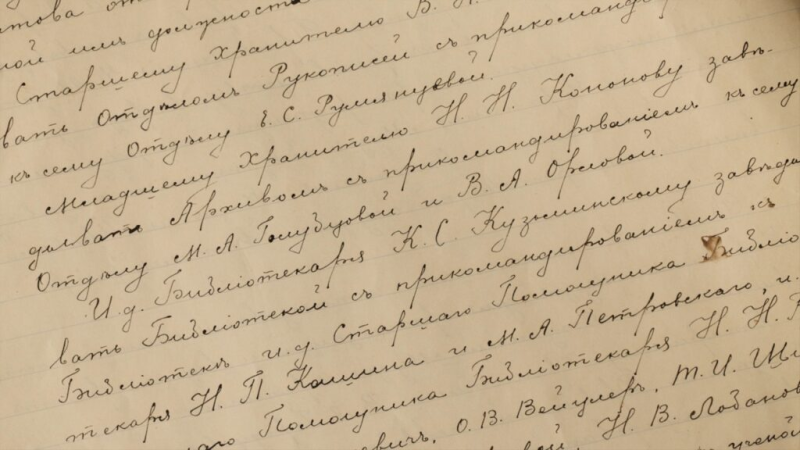 ной имъ должност
Старшему Хранителю В.
вать Отдѣломъ Рукописей съ прикоманд
къ сему Отдѣлу Е. С. Румянцевой.
Младшему Хранителю Н. Н. Кононову завѣ-
дывать Архивомъ съ прикомандированіемъ къ сему
Отдѣлу М. А. Голубцовой и В. А. Орловой.
И. д. Библіотекаря К. С. Кузьминскому завѣды
вать Библіотекой съ прикомандированіемъ къ
Библіотекѣ и. д. Старшаго Помощника Библіо
текаря Н. П. Кашина и М. А. Петровскаго, и.
аго Помощника Библіотекаря Н. Н.
евичъ, О. В. Вейцлеръ, Т. И.
Н. В. Лобанов